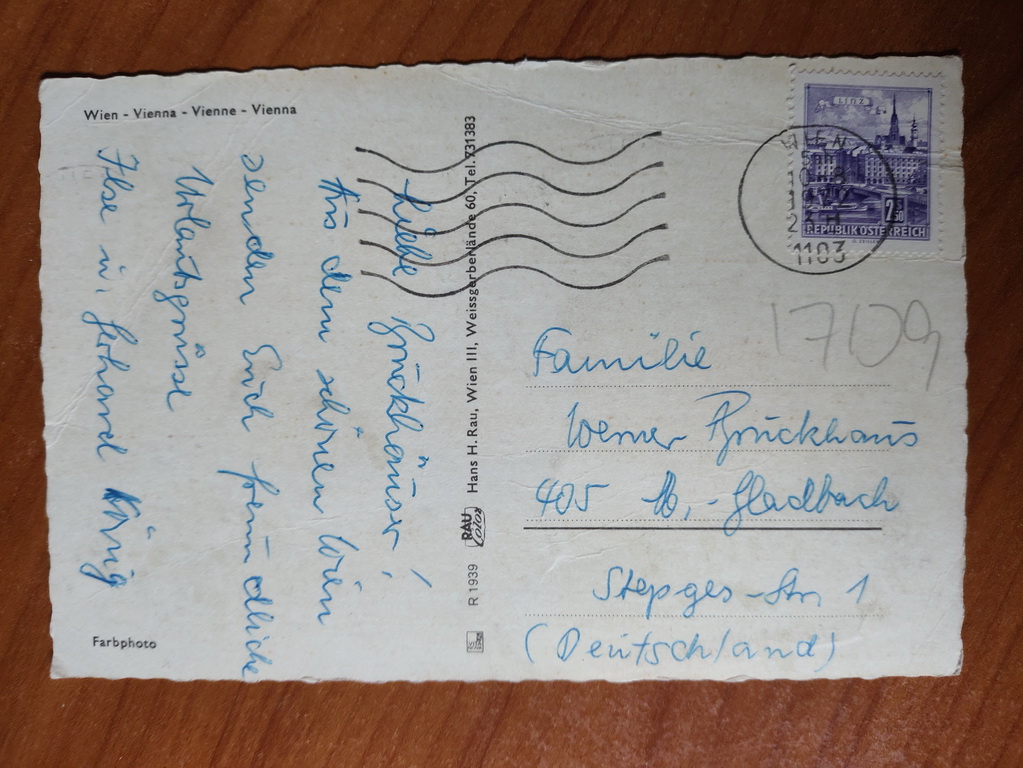 Wien - Vienna - Vienne - Vienna
Liebe Brückhäuser!
Aus dem schönen Wien
senden Euch freundliche
Urlaubsgrüsse
Ilse u. Gerhard König
Farbphoto
R 1939 RAU Foto Hans H. Rau, Wien III, Weissgerberlände 60, Tel. 731383
LINZ
2.50
REPUBLIK ÖSTERREICH
WIEN
1103
1709
Familie
Werner Brückhaus
405 M.-Gladbach
Stepges-Str. 1
(Deutschland)